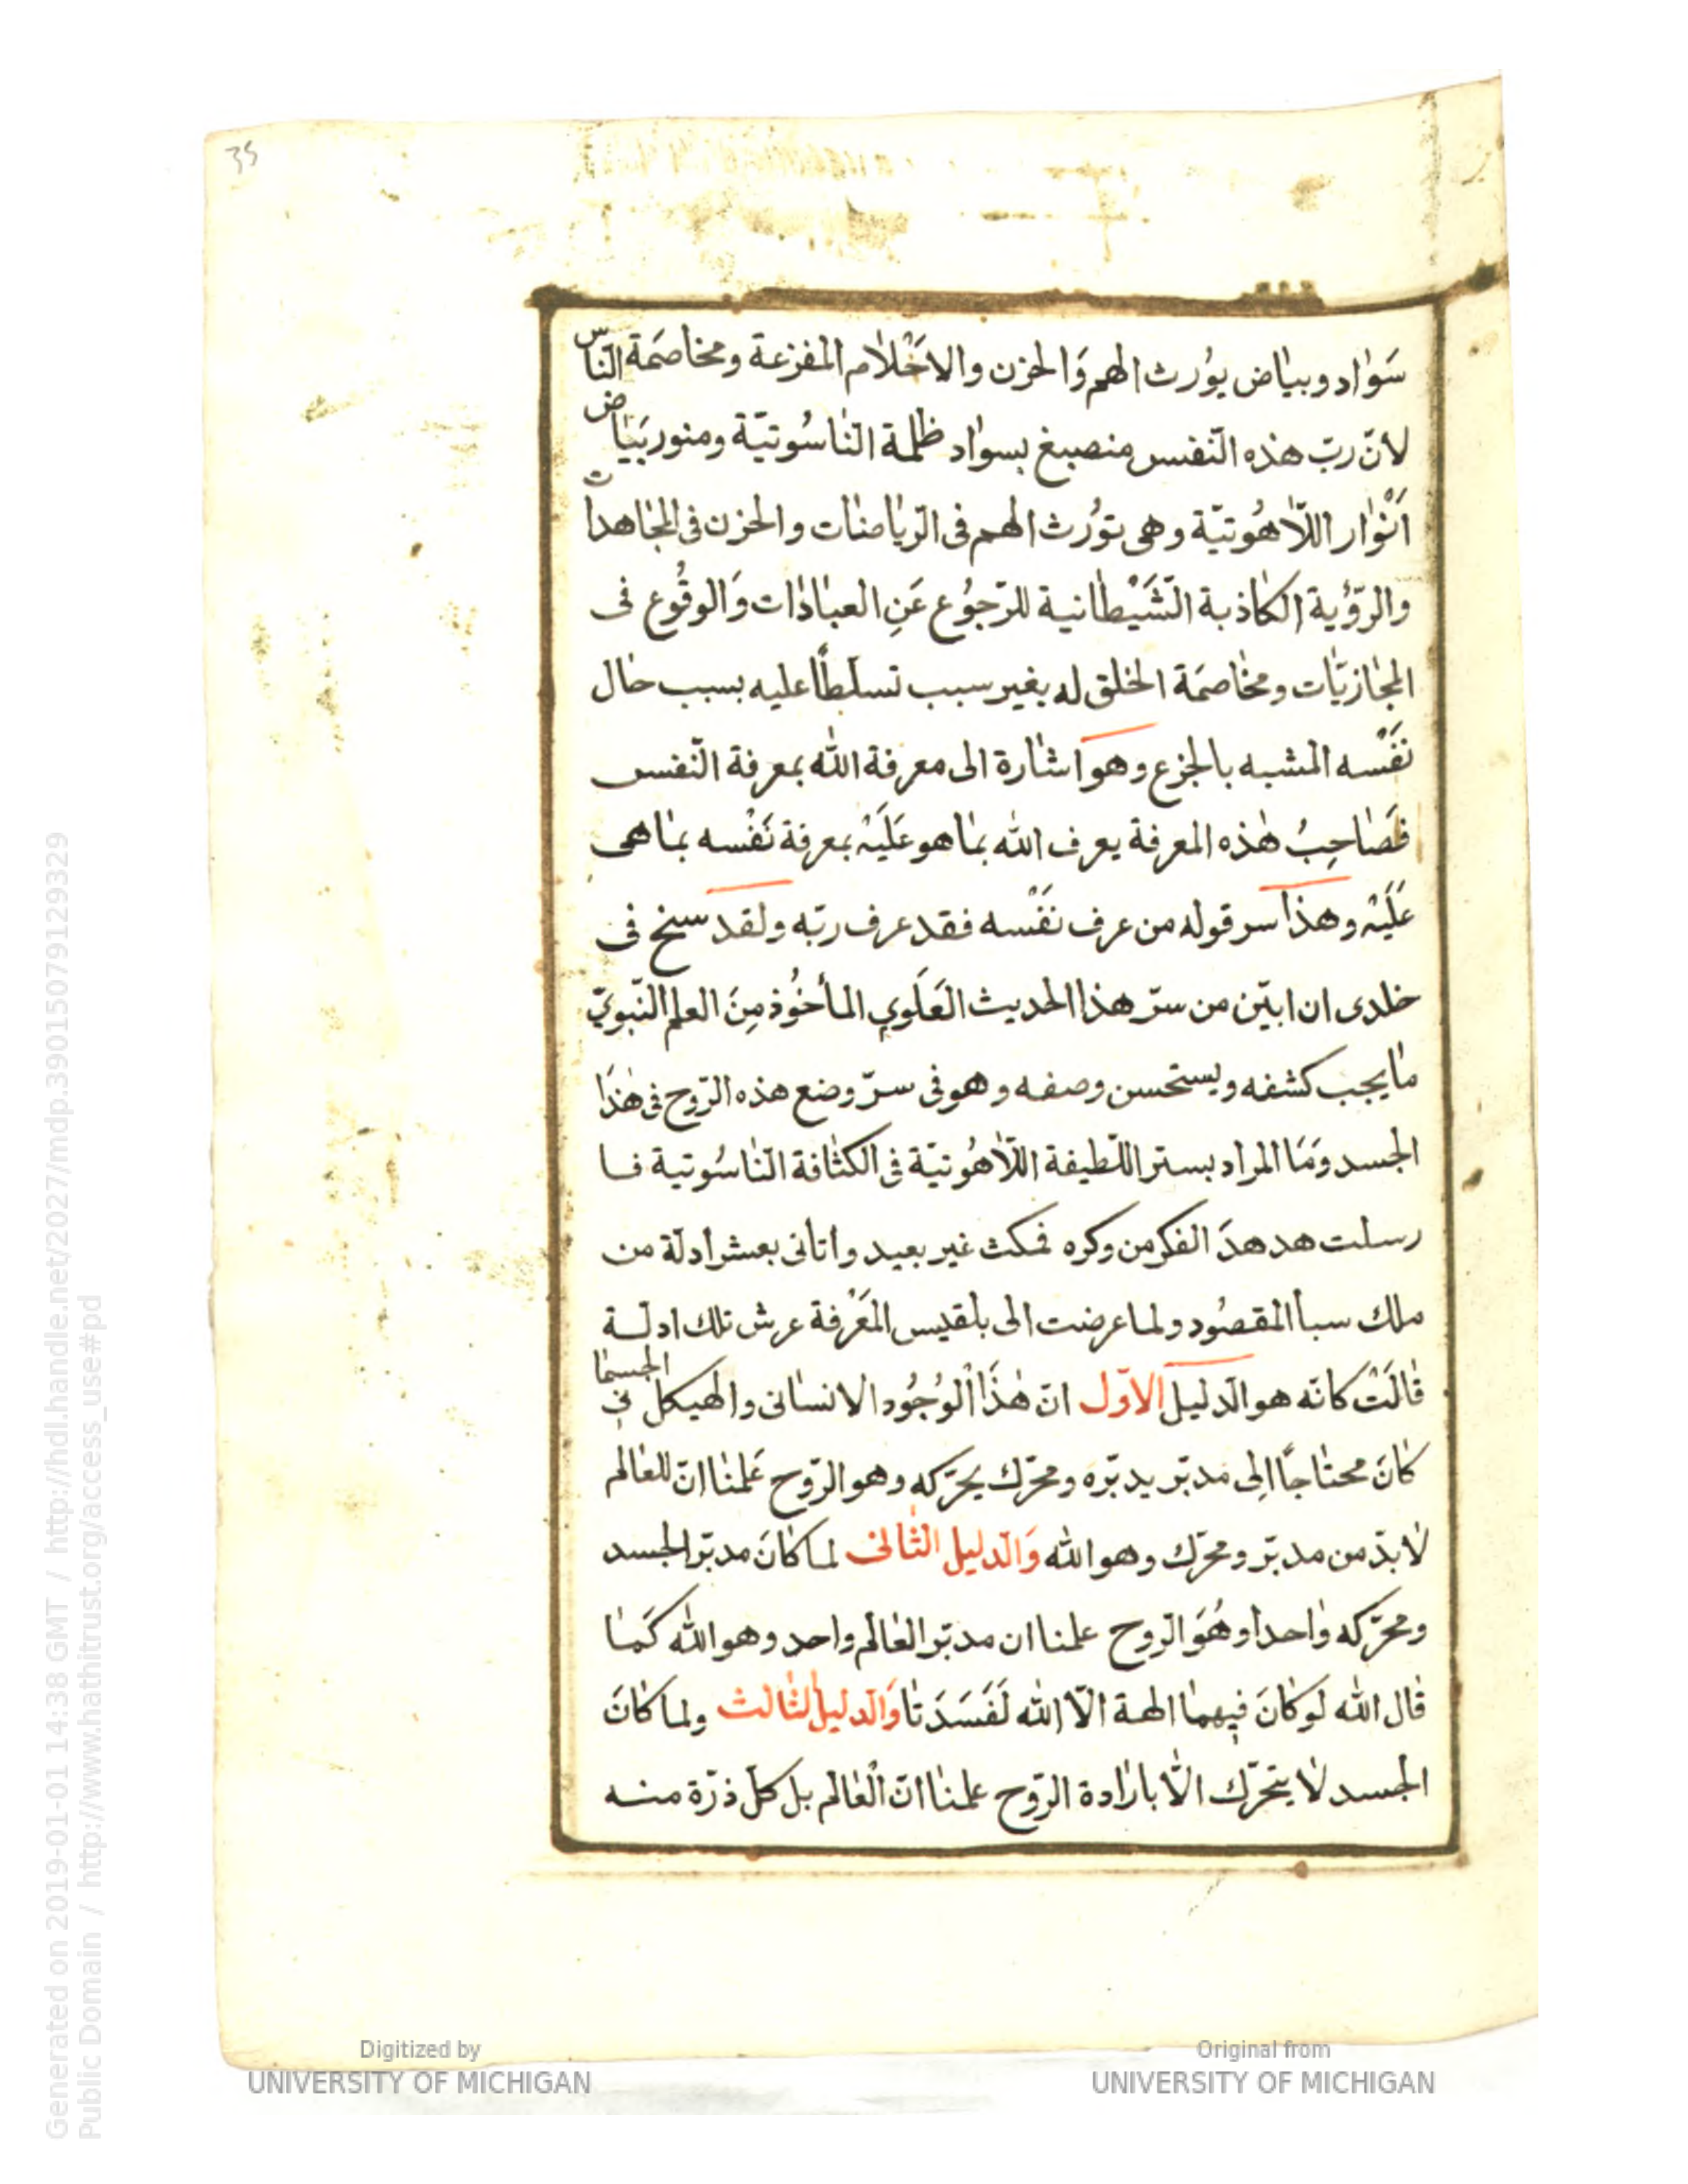 35
سَوٰاد وبيٰاض يوُرث الهم وَالحزن والاحْلاٰم المفزعة ومخاصمَة النّاس
لانّ ربّ هذه النّفس منصبغ بسوٰاد ظلمة النّاسُوتيّة ومنور ببَيٰاض
اَنْوٰار اللّاٰهُوتيّة وهى توُرث الهم فى الرّيٰاضٰات والحزن فى المجٰاهدات
والرّؤية الكٰاذبة الشَّيْطٰانية للرّجوُع عَنِ العبٰادٰات وَالوقُوع فى
المجٰازيّات ومخٰاصمَة الخلق له بغير سبب تسلطًا عليه بسبب حٰال
نَفْسه المشبه بالجزع وهو اشٰارة الى معرفة الله بمعرفة النّفس
فصَاحِبُ هٰذه المعرفة يعرف الله بمٰا هو عَلَيْه بمعرفة نَفْسه بمٰا هى
عَلَيْه وهذا سر قوله من عرف نَفْسه فقد عرف ربّه ولقد سنح فى
خلدى ان ابيّن من سرّ هذا الحديث العَلَوي المأخُوذ مِنَ العلم النّبويّ
مٰا يجب كشفه ويستحسن وصفه وهو فى سرّ وضع هذه الرّوح فى هٰذَا
الجسد وَمَا المراد بستر اللّطيفة اللّاٰهُوتيّة فى الكثٰافة النّاسُوتية فا
رسلت هدهدَ الفكر من وكره فمكث غير بعيد واتانى بعشر ادلة من
ملك سبأ المقصُود ولما عرضت الى بلقيس المَعْرفة عرش تلك ادلة
قٰالَتْ كانّه هو الدّليل الاوّل انّ هٰذَا الْوُجُود الانسٰانى والهيكل الجسمٰا نى
كٰانَ محتٰاجًا اِلى مدبّر يدبّره ومحرّك يحرّكه وهو الرّوح عَلمنٰا انّ للعٰالم
لاٰ بدّ من مدبّر ومحرّك وهو الله وَالدليل الثّانى لما كٰانَ مدبّر الجسد
ومحرّكه وٰاحدا وهُوَ الرّوح علمنا ان مدبّر العٰالم واحد وهو الله كَمٰا
قٰال الله لَوكٰانَ فِيهمٰا الهة الّا الله لَفَسَدَتٰا وَالدليل الثّالث ولما كٰانَ
الجسد لاٰ يتحرّك الّا بارٰادة الرّوح علمنٰا انّ الْعٰالم بل كلّ ذرّة منه
Generated on 2019-01-01 14:38 GMT / http://hdl.handle.net/2027/mdp.39015079129329
Public Domain / http://www.hathitrust.org/access_use#pd
Digitized by
UNIVERSITY OF MICHIGAN
Original from
UNIVERSITY OF MICHIGAN